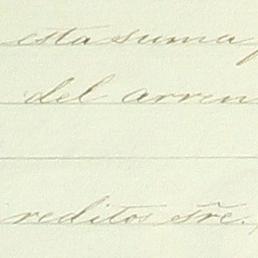 esta suma
del arren
reditos